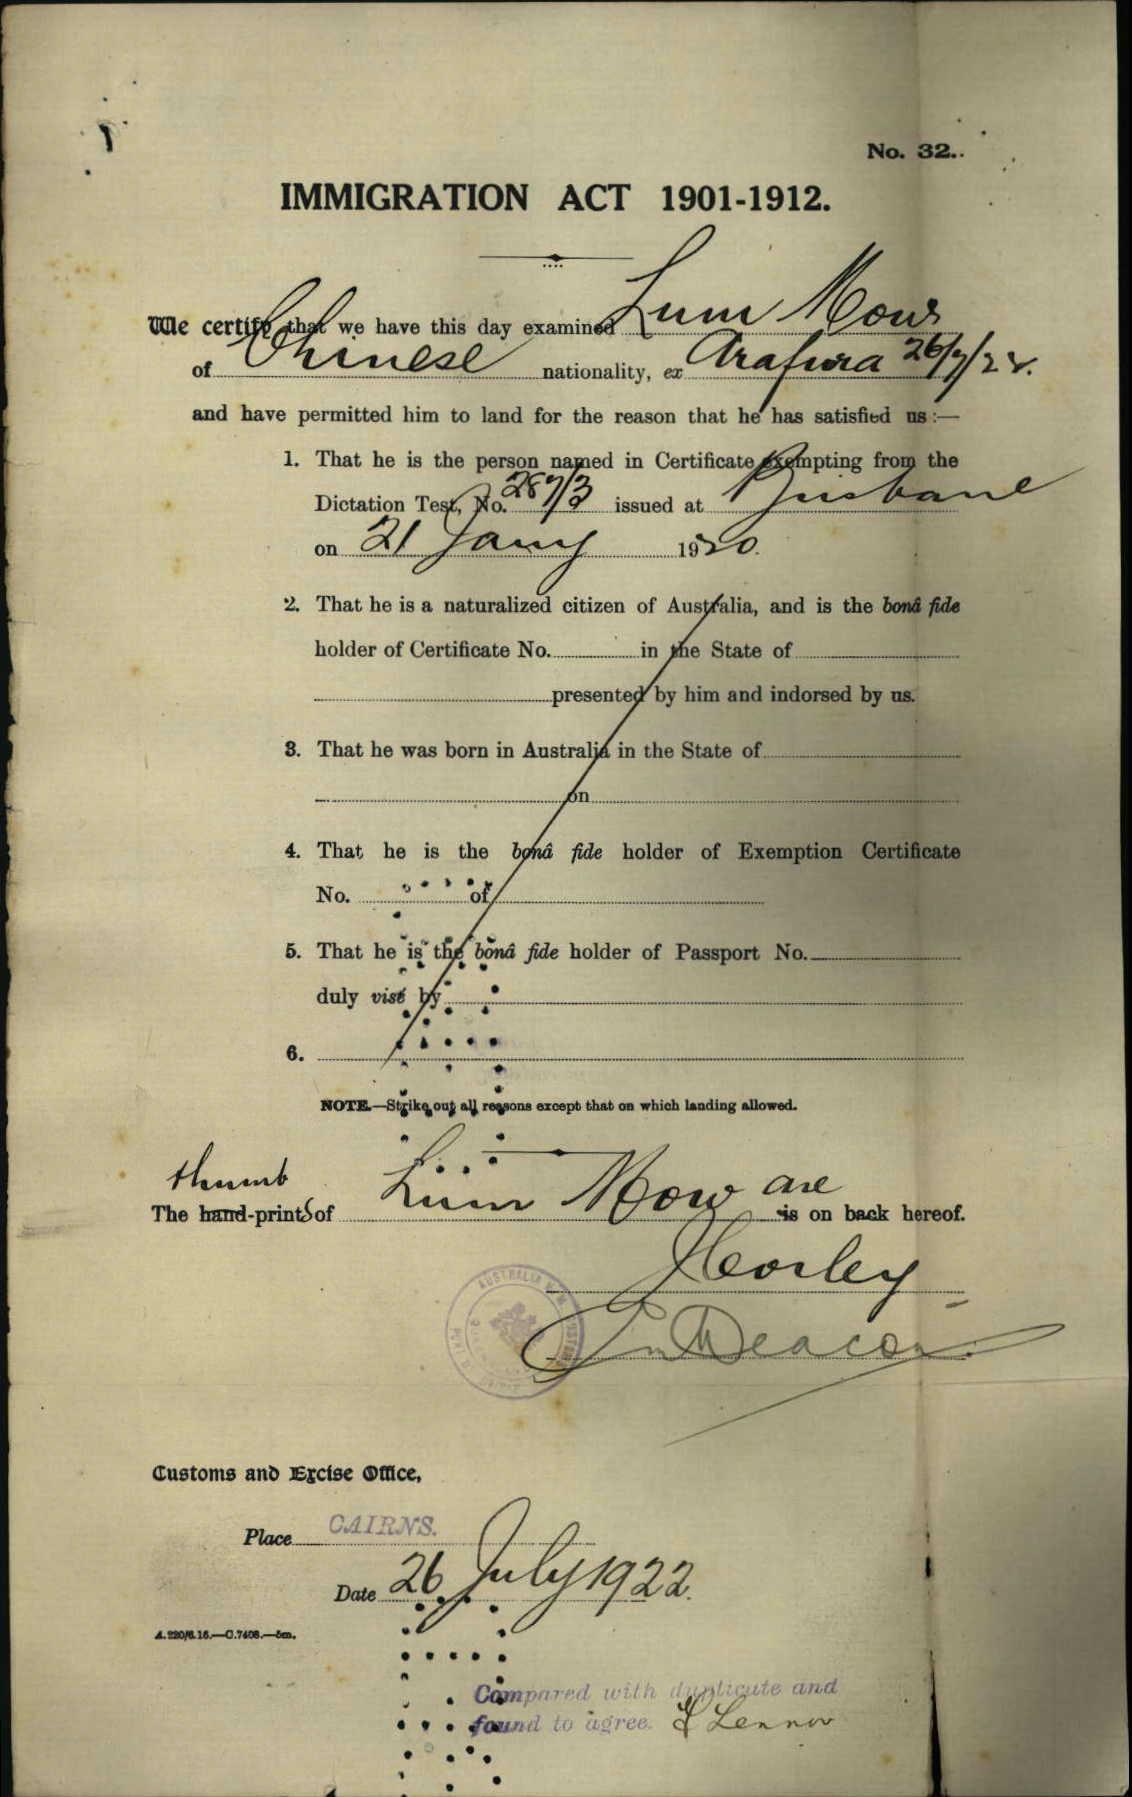 No. 32.
IMMIGRATION ACT 1901-1912.
We certify that we have this day examined Lum Mow
of Chinese nationality, ex Arafura 26/7/22.
and have permitted him to land for the reason that he has satisfied us:—
1. That he is the person named in Certificate exempting from the
Dictation Test, No. 287/3 issued at Brisbane
on 21 Jany 1920.
2. That he is a naturalized citizen of Australia, and is the bonâ fide
holder of Certificate No. in the State of
presented by him and indorsed by us.
3. That he was born in Australia in the State of
on
4. That he is the bonâ fide holder of Exemption Certificate
No. of
5. That he is the bonâ fide holder of Passport No.
duly visé by
6.
NOTE.—Strike out all reasons except that on which landing allowed.
thumb
The hand-prints of Lum Mow are is on back hereof.
Deacon
AUSTRALIA
Customs and Excise Office,
Place CAIRNS.
Date 26 July 1922.
A.220/6.16.—C.7408.—5m.
Compared with duplicate and
found to agree. Lennox